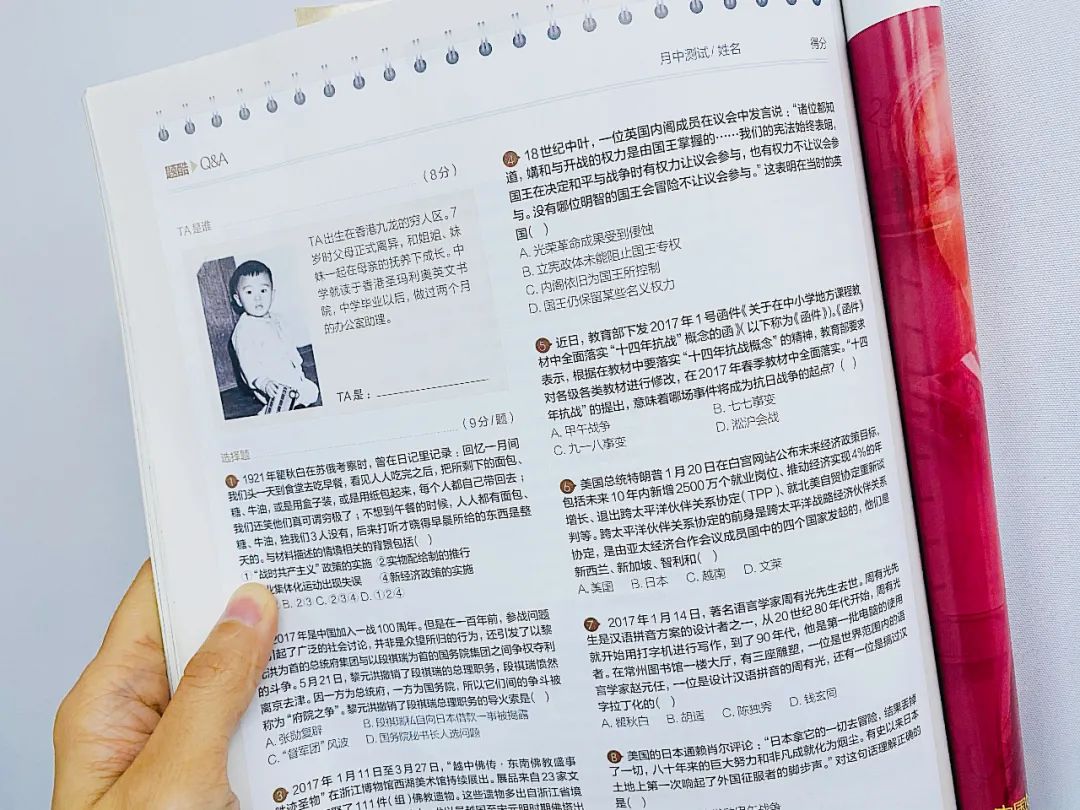 月中测试/姓名
得分
题酷 Q&A
(8分)
TA是谁
TA出生在香港九龙的穷人区。7
岁时父母正式离异,和姐姐、妹
妹一起在母亲的抚养下成长。中
学就读于香港圣玛利奥英文书
院,中学毕业以后,做过两个月
的办公室助理。
TA是:
(9分/题)
选择题
1 1921年瞿秋白在苏俄考察时,曾在日记里记录:回忆一月间
我们头一天到食堂去吃早餐,看见人人吃完之后,把所剩下的面包、
糖、牛油,或是用盒子装,或是用纸包起来,每个人都自己带回去;
我们还笑他们真可谓穷极了;不想到午餐的时候,人人都有面包、
糖、牛油,独我们3人没有,后来打听才晓得早晨所给的东西是整
天的。与材料描述的情境相关的背景包括( )
①“战时共产主义”政策的实施 ②实物配给制的推行
化集体化运动出现失误 ④新经济政策的实施
B.②③ C.②③④ D.①②④
2017年是中国加入一战100周年。但是在一百年前,参战问题
引起了广泛的社会讨论,并非是众望所归的行为,还引发了以黎
元洪为首的总统府集团与以段祺瑞为首的国务院集团之间争权夺利
的斗争。5月21日,黎元洪撤销了段祺瑞的总理职务,段祺瑞愤然
离京去津。因一方为总统府,一方为国务院,所以它们间的争斗被
称为“府院之争”。黎元洪撤销了段祺瑞总理职务的导火索是( )
A. 张勋复辟 B. 段祺瑞私自向日本借款一事被揭露
C.“督军团”风波 D. 国务院秘书长人选问题
3 2017年1月11日至3月27日,“越中佛传·东南佛教盛事
胜迹圣物”在浙江博物馆西湖美术馆持续展出。展品来自23家文
了111件(组)佛教遗物。这些遗物多出自浙江省境
4 18世纪中叶,一位英国内阁成员在议会中发言说:“诸位都知
道,媾和与开战的权力是由国王掌握的……我们的宪法始终表明,
国王在决定和平与战争时有权力让议会参与,也有权力不让议会参
与。没有哪位明智的国王会冒险不让议会参与。”这表明在当时的英
国( )
A. 光荣革命成果受到侵蚀
B. 立宪政体未能阻止国王专权
C. 内阁依旧为国王所控制
D. 国王仍保留某些名义权力
5 近日,教育部下发2017年1号函件《关于在中小学地方课程教
材中全面落实“十四年抗战”概念的函》(以下称为《函件》)。《函件》
表示,根据在教材中要落实“十四年抗战概念”的精神,教育部要求
对各级各类教材进行修改,在2017年春季教材中全面落实。“十四
年抗战”的提出,意味着哪场事件将成为抗日战争的起点?( )
A. 甲午战争 B. 七七事变
C. 九一八事变 D. 淞沪会战
6 美国总统特朗普1月20日在白宫网站公布未来经济政策目标,
包括未来10年内新增2500万个就业岗位、推动经济实现4%的年
增长、退出跨太平洋伙伴关系协定(TPP)、就北美自贸协定重新谈
判等。跨太平洋伙伴关系协定的前身是跨太平洋战略经济伙伴关系
协定,是由亚太经济合作会议成员国中的四个国家发起的,他们是
新西兰、新加坡、智利和( )
A.美国 B.日本 C.越南 D.文莱
7 2017年1月14日,著名语言学家周有光先生去世。周有光先
生是汉语拼音方案的设计者之一,从20世纪80年代开始,周有光
就开始用打字机进行写作,到了90年代,他是第一批电脑的使用
者。在常州图书馆一楼大厅,有三座雕塑,一位是世界范围内的语
言学家赵元任,一位是设计汉语拼音的周有光,还有一位是搞过汉
字拉丁化的( )
A. 瞿秋白 B. 胡适 C. 陈独秀 D. 钱玄同
8 美国的日本通赖肖尔评论:“日本拿它的一切去冒险,结果丢掉
了一切,八十年来的巨大努力和非凡成就化为烟尘。有史以来日本
土地上第一次响起了外国征服者的脚步声。”对这句话理解正确的
是( )